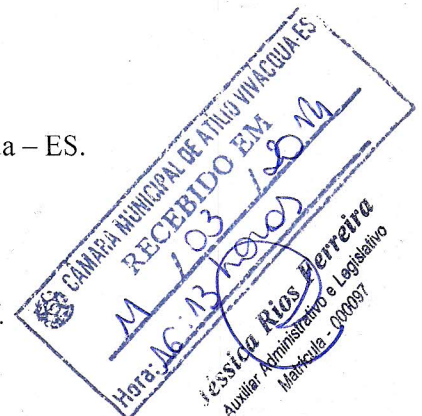 a – ES.
CÂMARA MUNICIPAL DE ATILIO VIVACQUA-ES
RECEBIDO EM
11 / 03 / 2014
Hora: 16:13 horas
Jéssica Rios Ferreira
Auxiliar Administrativo e Legislativo
Matrícula - 000097